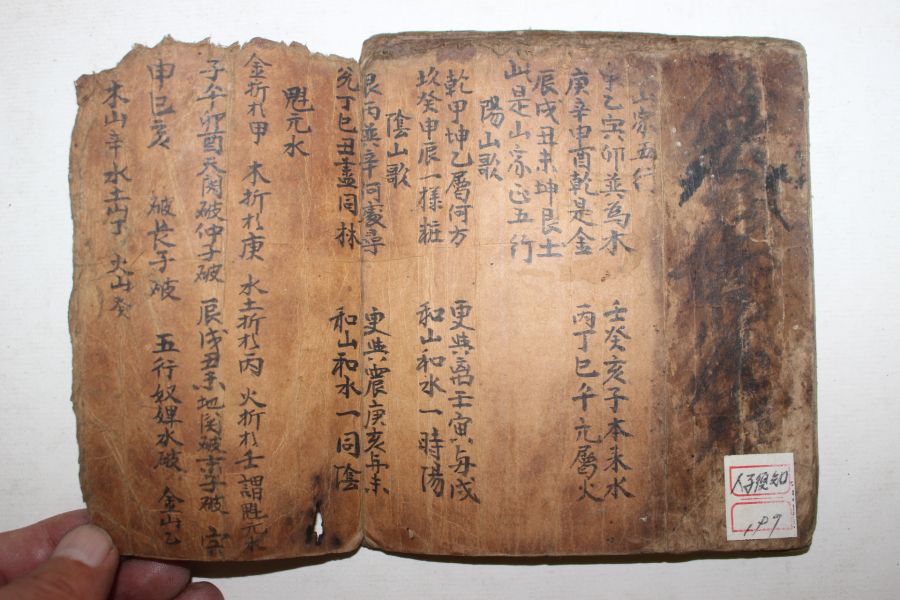 山家五行
甲乙寅卯並爲木 壬癸亥子本來水
庚辛申酉乾是金 丙丁巳午元屬火
辰戌丑未坤艮土
此是山家正五行
陽山歌
乾甲坤乙屬何方 更與离壬寅与戌
坎癸申辰一樣粧 和山和水一時陽
陰山歌
艮丙並辛何處尋 更與震庚亥与未
兊丁巳丑盡同林 和山和水一同陰
魁元水
金折扵甲 木折扵庚 水土折扵丙 火折扵壬 謂魁元水
子午卯酉天関破仲子破 辰戌丑未地関破季子破 寅
申巳亥 破長子破 五行奴婢水破 金山乙
木山辛 水土山丁 火山癸
人子須知